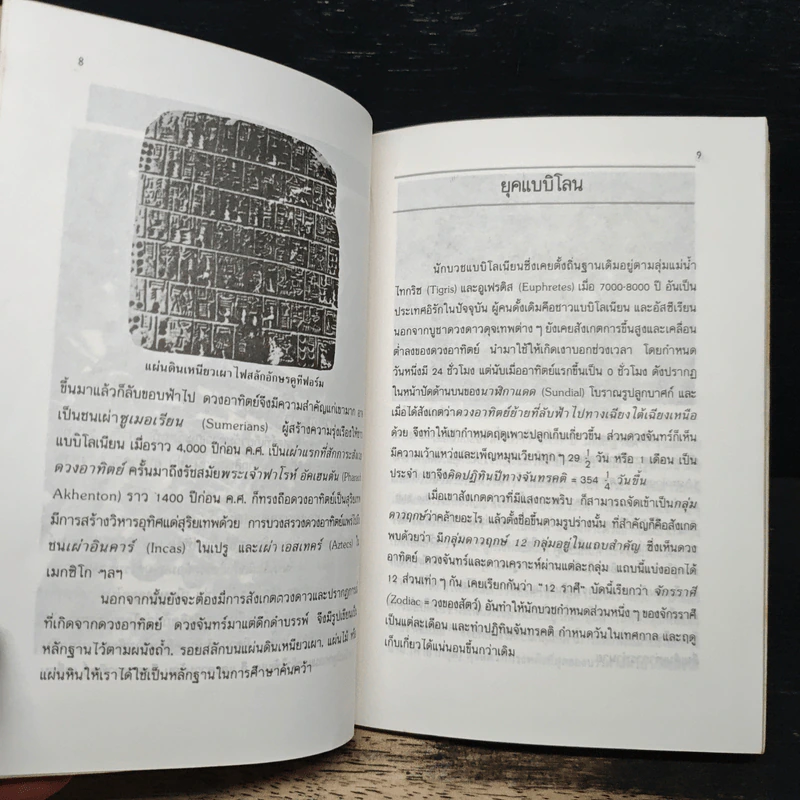 8
แผ่นดินเหนียวเผาไฟสลักอักษรคูทีฟอร์ม
ขึ้นมาแล้วก็ลับขอบฟ้าไป ดวงอาทิตย์จึงมีความสำคัญแก่เขามาก
เป็นชนเผ่าซูเมอเรียน (Sumerians) ผู้สร้างความรุ่งเรืองให้
แบบิโลเนียน เมื่อราว 4,000 ปีก่อน ค.ศ. เป็นเผ่าแรกที่สักการะ
ดวงอาทิตย์ ครั้นมาถึงรัชสมัยพระเจ้าฟาโรห์ อัคเฮนตัน
Akhenton) ราว 1400 ปีก่อน ค.ศ. ก็ทรงถือดวงอาทิตย์เป็นสุริยเทพ
มีการสร้างวิหารอุทิศแด่สุริยเทพด้วย การบวงสรวงดวงอาทิตย์
ชนเผ่าอินคาร์ (Incas) ในเปรู และเผ่าเอสเทคร์ (Aztecs)
เมกซิโก ฯลฯ
นอกจากนั้นยังจะต้องมีการสังเกตดวงดาวและปรากฏการณ์
ที่เกิดจากดวงอาทิตย์ ดวงจันทร์มาแต่ดึกดำบรรพ์ จึงมีรูปเขียน
หลักฐานไว้ตามผนังถ้ำ, รอยสลักบนแผ่นดินเหนียวเผา, แผ่นไม้
แผ่นหินให้เราได้ใช้เป็นหลักฐานในการศึกษาค้นคว้า
9
ยุคแบบิโลน
นักบวชแบบิโลเนียนซึ่งเคยตั้งถิ่นฐานเดิมอยู่ตามลุ่มแม่น้ำ
ไทกริซ (Tigris) และอูเฟรติส (Euphretes) เมื่อ 7000-8000 ปี อันเป็น
ประเทศอิรักในปัจจุบัน ผู้คนดั้งเดิมคือชาวแบบิโลเนียน และอัสซีเรียน
นอกจากบูชาดวงดาวดุจเทพต่าง ๆ ยังเคยสังเกตการขึ้นสูงและเคลื่อน
ต่ำลงของดวงอาทิตย์ นำมาใช้ให้เกิดเงาบอกช่วงเวลา โดยกำหนด
วันหนึ่งมี 24 ชั่วโมง แต่นับเมื่ออาทิตย์แรกขึ้นเป็น 0 ชั่วโมง ดังปรากฏ
ในหน้าปัดด้านบนของนาฬิกาแดด (Sundial) โบราณรูปลูกบาศก์ และ
เมื่อได้สังเกตว่าดวงอาทิตย์ย้ายที่ลับฟ้าไปทางเฉียงใต้เฉียงเหนือ
ด้วย จึงทำให้เขากำหนดฤดูเพาะปลูกเก็บเกี่ยวขึ้น ส่วนดวงจันทร์ก็เห็น
มีความเว้าแหว่งและเพ็ญหมุนเวียนทุก ๆ 29 1/2 วัน หรือ 1 เดือน เป็น
ประจำ เขาจึงคิดปฏิทินปีทางจันทรคติ = 354 1/4 วันขึ้น
เมื่อเขาสังเกตดาวที่มีแสงกะพริบ ก็สามารถจัดเข้าเป็นกลุ่ม
ดาวฤกษ์ว่าคล้ายอะไร แล้วตั้งชื่อขึ้นตามรูปร่างนั้น ที่สำคัญก็คือสังเกต
พบด้วยว่า มีกลุ่มดาวฤกษ์ 12 กลุ่มอยู่ในแถบสำคัญ ซึ่งเห็นดวง
อาทิตย์ ดวงจันทร์และดาวเคราะห์ผ่านแต่ละกลุ่ม แถบนี้แบ่งออกได้
12 ส่วนเท่า ๆ กัน เคยเรียกกันว่า "12 ราศี" บัดนี้เรียกว่า จักรราศี
(Zodiac = วงของสัตว์) อันทำให้นักบวชกำหนดส่วนหนึ่ง ๆ ของจักรราศี
เป็นแต่ละเดือน และทำปฏิทินจันทรคติ กำหนดวันในเทศกาล และฤดู
เก็บเกี่ยวได้แน่นอนขึ้นกว่าเดิม